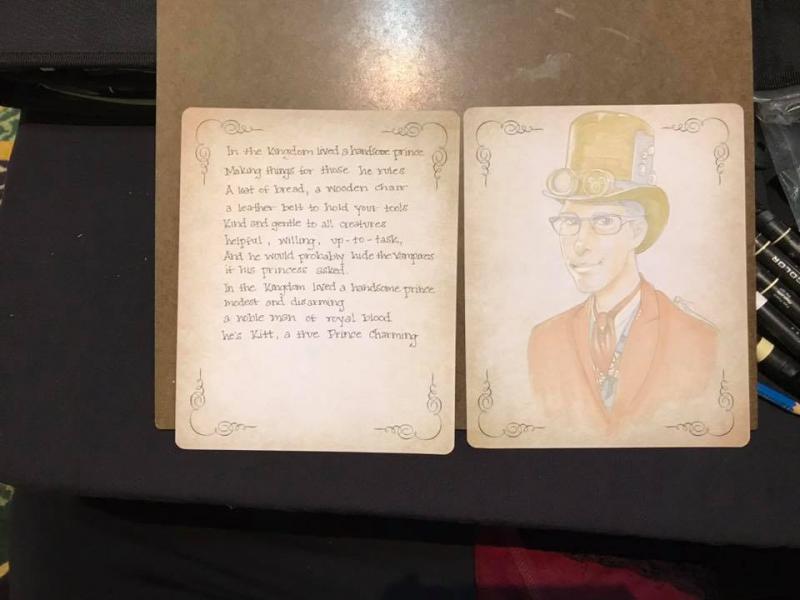 In the Kingdom lived a handsome prince
Making things for those he rules
A loaf of bread, a wooden chair
a leather belt to hold your tools
Kind and gentle to all creatures
helpful, willing, up-to-task,
And he would probably hide the Vampires
if his princess asked.
In the Kingdom lived a handsome prince
modest and disarming
a noble man of royal blood
he's Kitt, a true Prince Charming
COLOR